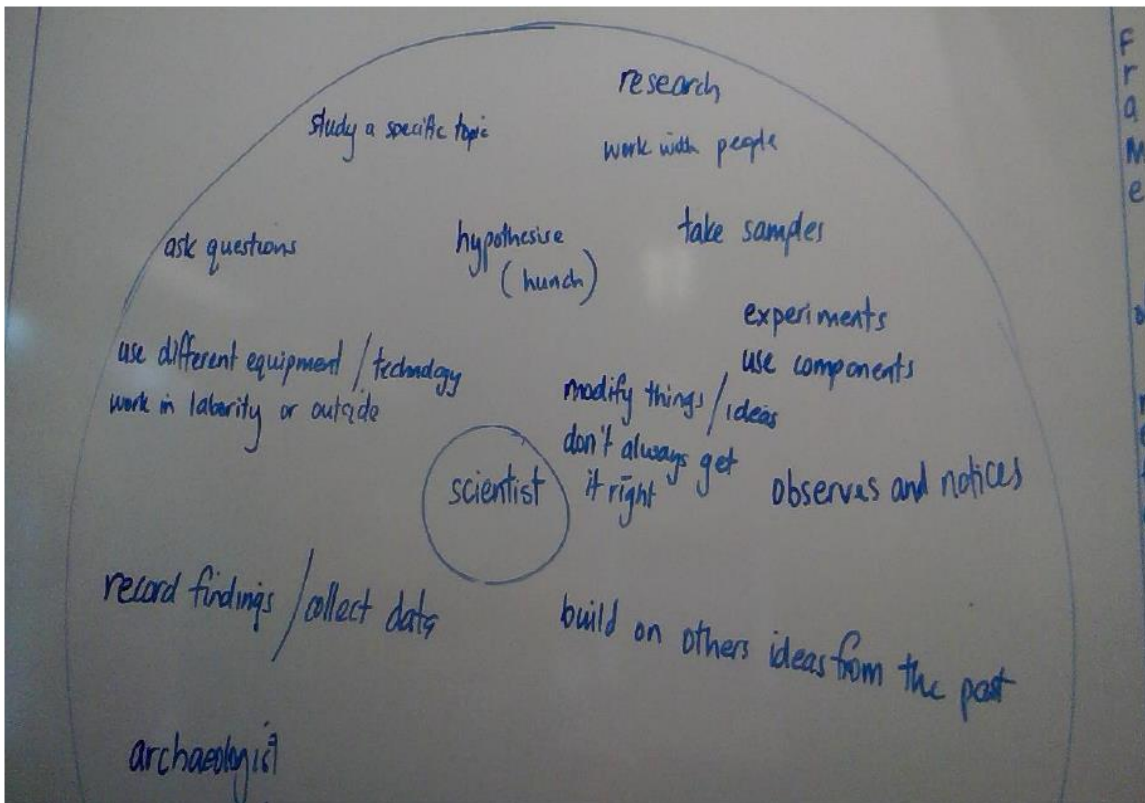 research
study a specific topic
work with people
ask questions
hypothesise
(hunch)
take samples
experiments
use components
use different equipment / technology
work in labority or outside
modify things / ideas
don't always get
it right
scientist
observes and notices
record findings / collect data
build on others ideas from the past
archaeologist
FraMe